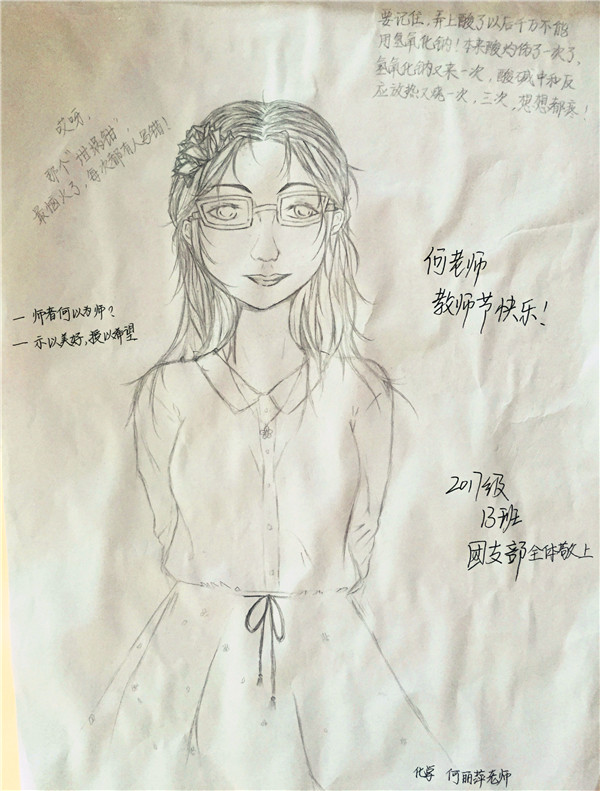 要记住，弄上酸了以后千万不能
用氢氧化钠！本来酸灼伤了一次了，
氢氧化钠又来一次，酸碱中和反
应放热又烧一次，三次，想想都疼！
哎呀，
那个“坩埚钳”，
最恼火了，每次都有人写错！
何老师
教师节快乐！
— 师者何以为师？
— 示以美好，授以希望
2017级
13班
团支部全体敬上
化学 何丽萍老师